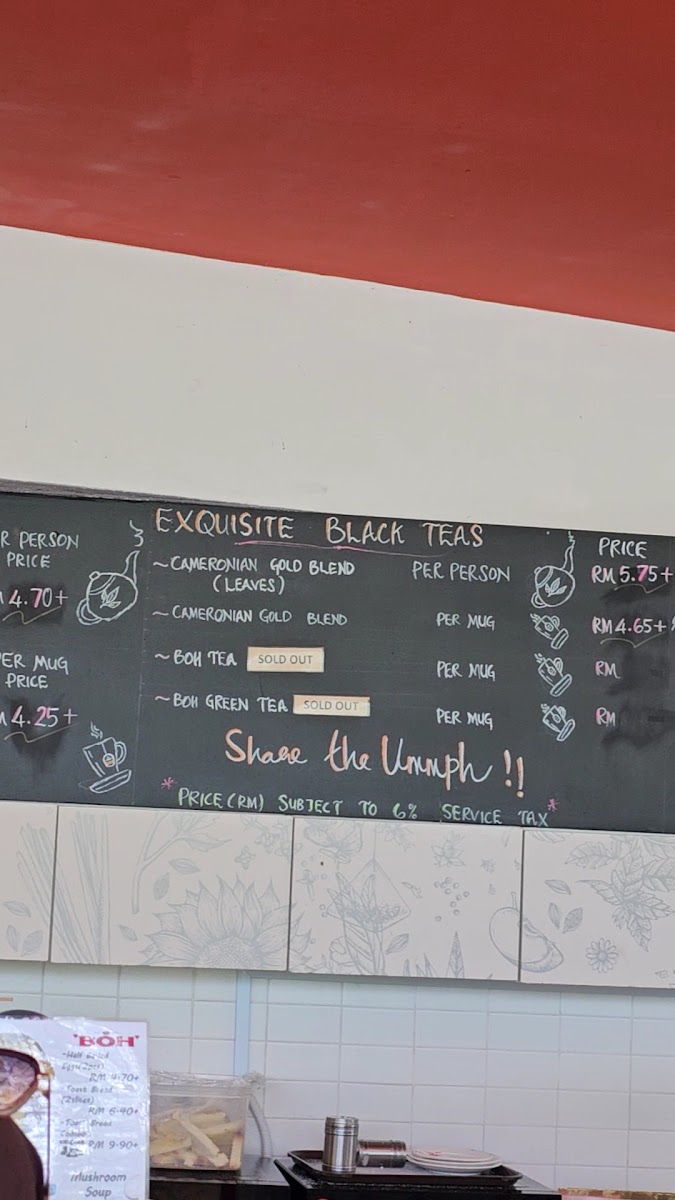 R PERSON
PRICE
4.70+
ER MUG
PRICE
4.25+
EXQUISITE BLACK TEAS
PRICE
~CAMERONIAN GOLD BLEND
(LEAVES)
PER PERSON
RM 5.75+
~CAMERONIAN GOLD BLEND
PER MUG
RM 4.65+
~BOH TEA
SOLD OUT
PER MUG
RM
~BOH GREEN TEA
SOLD OUT
PER MUG
RM
Share the Ummph !!
*PRICE (RM) SUBJECT TO 6% SERVICE TAX*
'BOH'
-Half Boiled
RM 4.70+
RM 6.40+
RM 9.90+
Mushroom
Soup